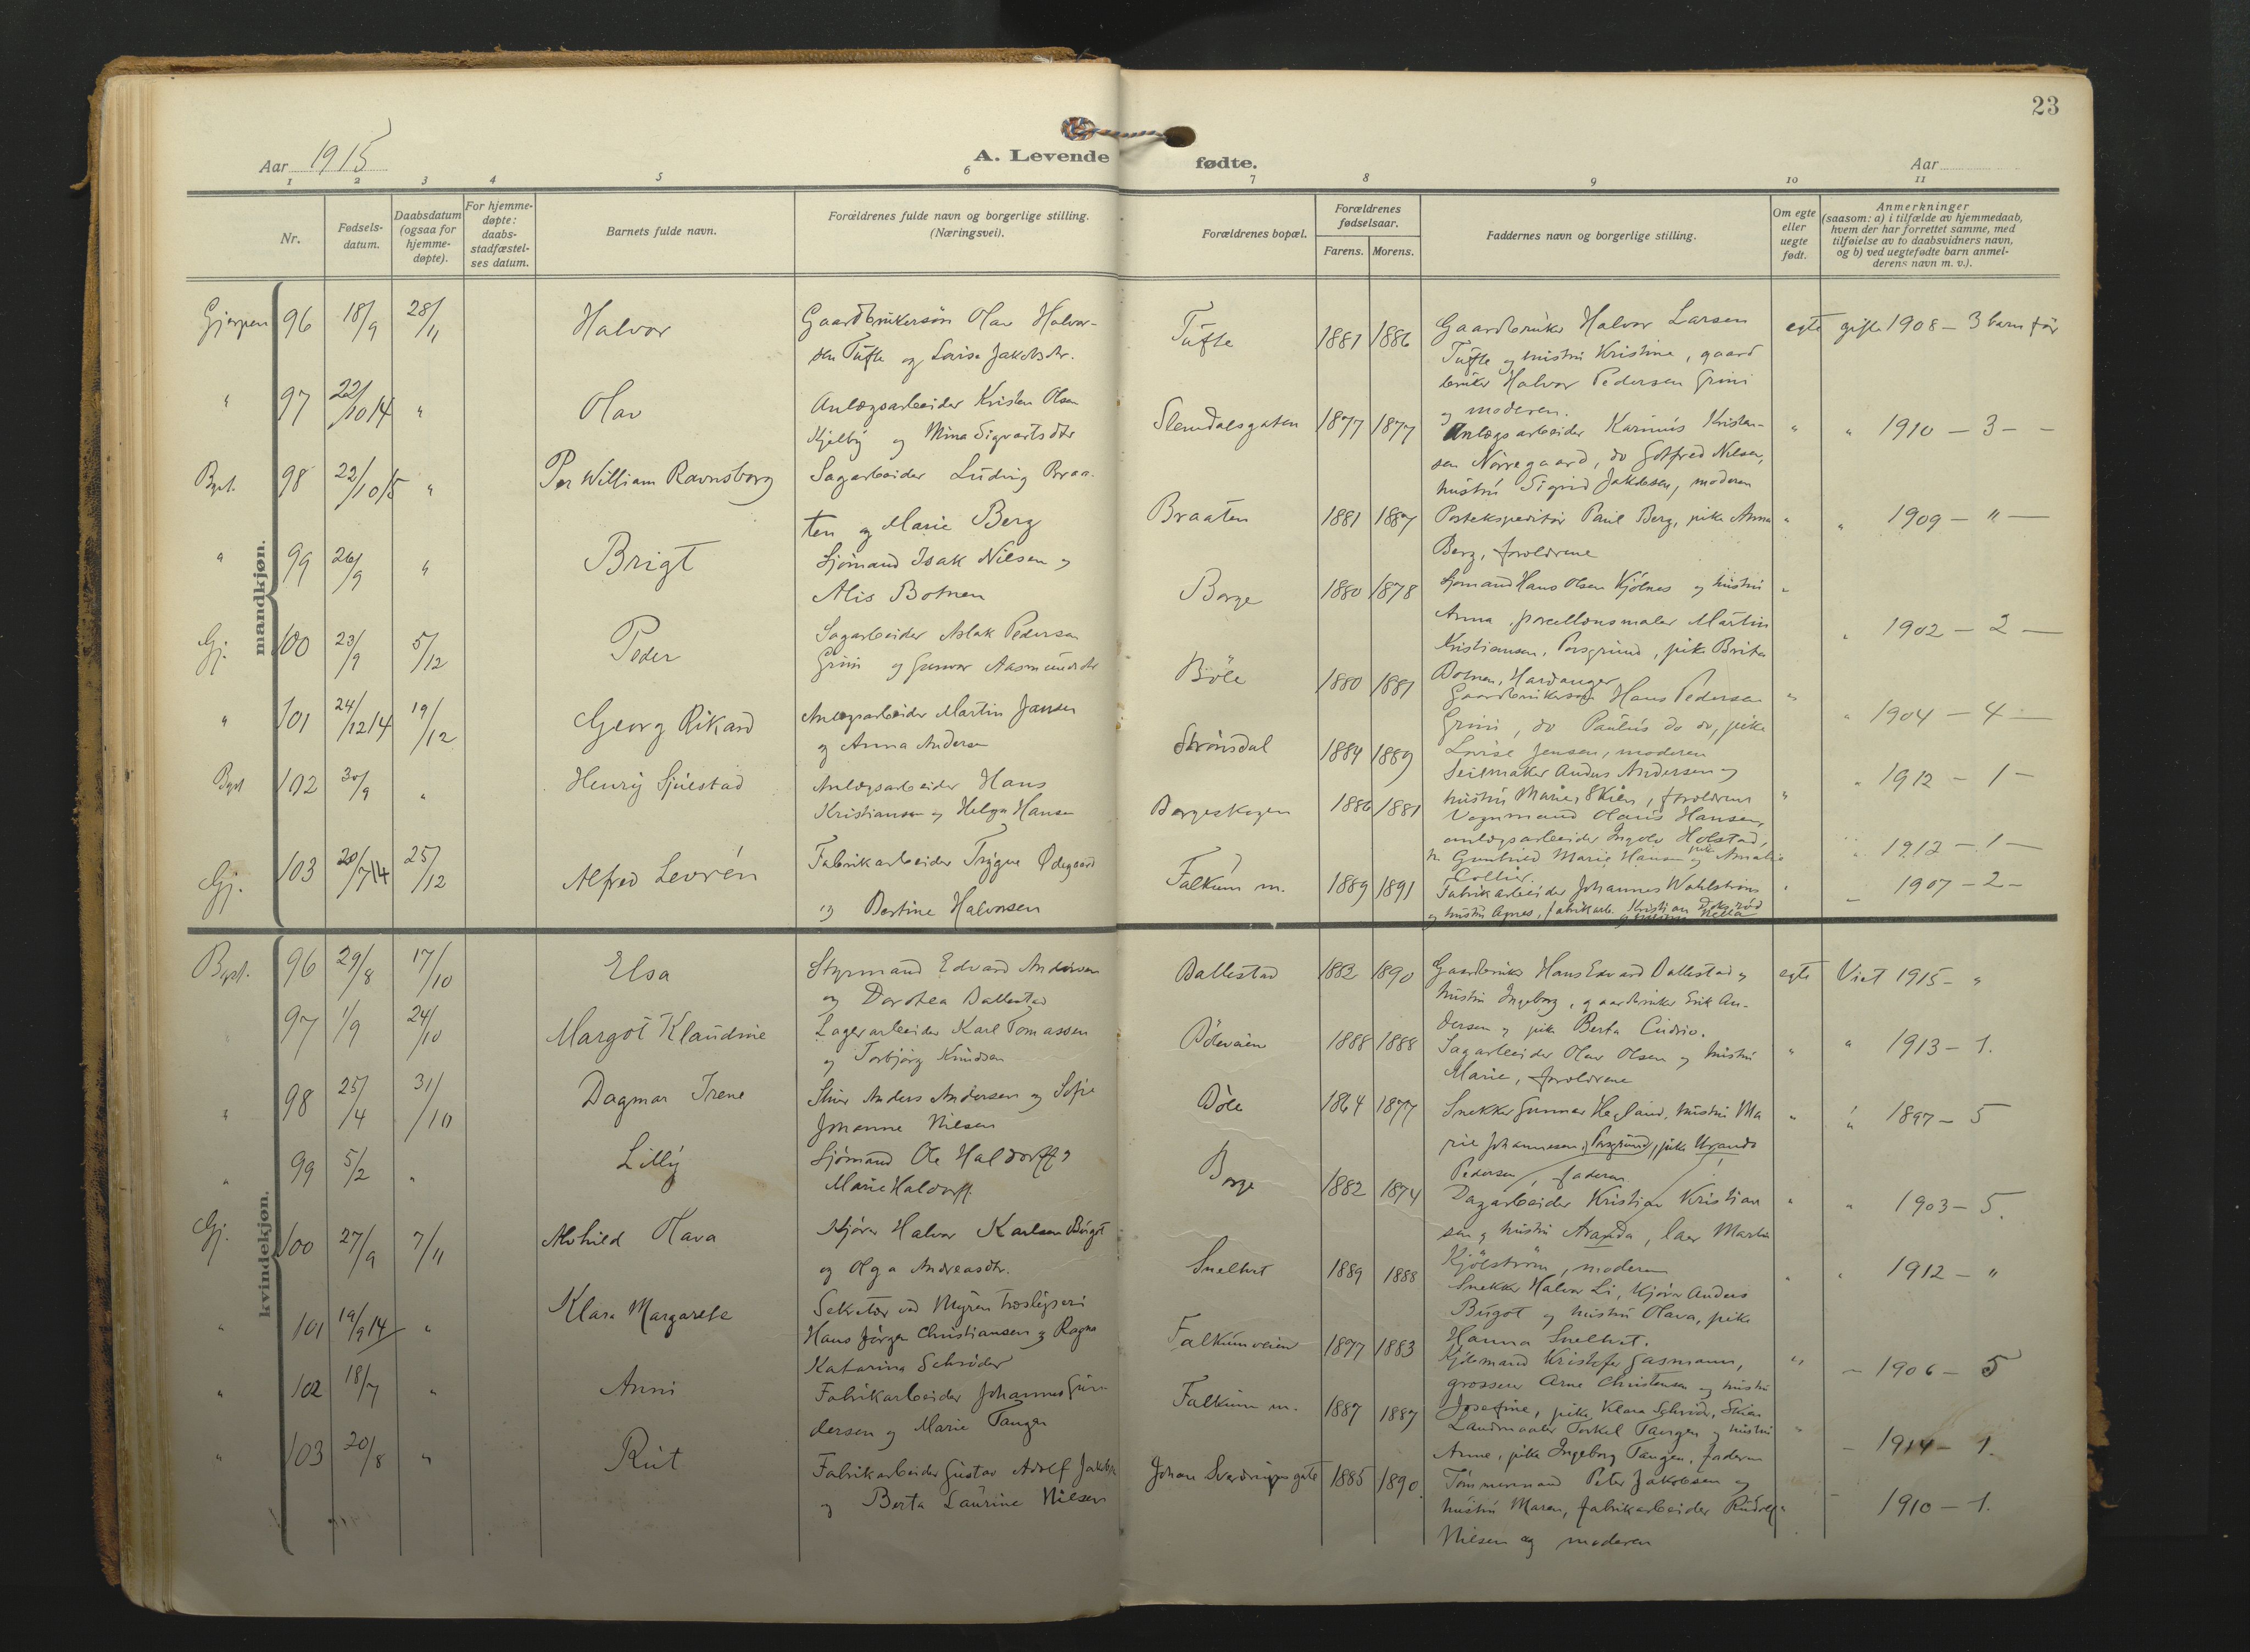 23
Aar 1915
A. Levende fødte.
Aar
1 2 3 4 5 6 7 8 9 10 11
Nr.
Fødsels-
datum.
Daabsdatum
(ogsaa for
hjemme-
døpte).
For hjemme-
døpte:
daabs-
stadfæstel-
ses datum.
Barnets fulde navn.
Forældrenes fulde navn og borgerlige stilling.
(Næringsvei).
Forældrenes bopæl.
Forældrenes
fødselsaar.
Farens. Morens.
Faddernes navn og borgerlige stilling.
Om egte
eller
uegte
født.
Anmerkninger
(saasom: a) i tilfælde av hjemmedaab,
hvem der har forrettet samme, med
tilføielse av to daabsvidners navn,
og b) ved uegtefødte barn anmel-
derens navn m. v.).
mandkjøn.
Gjerpen 96 18/9 28/11 Halvor
Gaardbrukersøn Olav Halvor-
sen Tufte og Lovise Jakobsdtr.
Tufte 1881 1886
Gaardbruker Halvor Larsen
Tufte og hustru Kristine, gaard
bruker Halvor Pedersen Grini
og moderen.
egte gifte 1908 - 3 barn før
" 97 22/10 14 " Olav
Anlægsarbeider Kristen Olsen
Kjelby og Mina Sigvartsdtr
Slemdalsgaten 1877 1877
Anlægsarbeider Karinius Kristen-
sen Nørregaard, do Gotfred Nilsen,
hustru Sigrid Jakobsen, moderen
" " 1910 - 3 - -
Bgst. 98 22/10 15 " Per William Ravnsborg
Sagarbeider Ludvig Braa-
ten og Marie Berg
Braaten 1881 1887
Postekspeditør Paul Berg, pike Anna
Berg, forældrene
" " 1909 - " -
" 99 26/9 " Brigt
Sjømand Isak Nilsen og
Alis Botnen
Borge 1880 1878
Sjømand Hans Olsen Kjølnes og hustru
Anna, porcellænsmaler Martin
Kristiansen, Porsgrund, pike Brita
Botnen, Hardanger
" " 1902 - 2 -
Gj. 100 23/9 5/12 Peder
Sagarbeider Aslak Pedersen
Grini og Gunvor Aasmundsdtr
Bøle 1880 1881
Gaardbrukersøn Hans Pedersen
Grini, do Paulus do do, pike
Lovise Jensen, moderen
" " 1904 - 4 -
" 101 24/12 14 19/12 Georg Rikard
Anlægsarbeider Martin Jansen
og Anna Andersen
Strømsdal 1884 1889
Seilmaker Anders Andersen og
hustru Marie, Skien, forældrene
" 1912 - 1 -
Bgst 102 30/9 " Henry Sjulestad
Anlægsarbeider Hans
Kristiansen og Helga Hansen
Borgeskogen 1886 1881
Vognmand Olaus Hansen,
anlægsarbeider Ingolv Holstad,
Gunhild Marie Hansen og pike Amalie
" " 1912 - 1 -
Gj. 103 20/7 14 25/12 Alfred Levrén
Fabrikarbeider Trygve Ødegaard
og Bertine Halvorsen
Falkum m. 1889 1891
Fabrikarbeider Johannes Wahlstrøm
og hustru Agnes, fabrikarb. Kristian
" 1907 - 2 -
kvindekjøn.
Bgst. 96 29/8 17/10 Elsa
Styrmand Edvard Andersen
og Dorthea Ballestad
Ballestad 1882 1890
Gaardbruker Hans Edvard Ballestad og
hustru Ingeborg, gaardbruker Erik An-
dersen og pike Berta
egte Viet 1915 - "
" 97 1/9 24/10 Margot Klaudine
Lagerarbeider Karl Tomassen
og Torbjørg Knudsen
Bøleveien 1888 1888
Sagarbeider Olav Olsen og hustru
Marie, forældrene
" " 1913 - 1.
" 98 25/4 31/10 Dagmar Irene
Anders Andersen og Sofie
Johanne Nilsen
Bøle 1864 1877
Snekker Gunnar Hegland, hustru Ma
rie Johannesen, Porsgrund, pike
Pedersen, faderen
" " 1897 - 5
" 99 5/2 " Lilly
Sjømand Ole Haldorff og
Marie Haldorff
Borge 1882 1874
Dagarbeider Kristian Kristian
sen og hustru Aranda, Martin
Kjølstrøm, moderen
" " 1903 - 5.
Gj. 100 27/9 7/11 Alvhild Olava
Kjører Halvor Karlsen
og Olga Andreasdtr.
Snelhvt 1889 1888
Snekker Halvor Li, Kjører Anders
og hustru Olava, pike
Hanna Snelhvt.
" " 1912 - "
" 101 19/9 14 " Klara Margarete
Sekretær ved Myren træsliperi
Hans Jørgen Christiansen og Ragna
Katarina Schrøder
Falkumveien 1877 1883
Kristofer Gasmann,
grosserer Arne Christensen og hustru
Josefine, pike Klara Schrøder, Skien
" - 1906 - 5
" 102 18/7 " Anni
Fabrikarbeider Johannes Gun-
dersen og Marie Tangen
Falkum m. 1887 1887
Landmaaler Torkel Tangen og hustru
Anne, pike Ingeborg Tangen, faderen
" - 1914 - 1.
" 103 20/8 " Rut
Fabrikarbeider Gustav Adolf Jakobsen
og Berta Laurine Nilsen
Johan Sverdrups gate 1885 1890.
Tømmermand Peter Jakobsen og
hustru Maren, fabrikarbeider Rudolf
Nilsen og moderen
" - 1910 - 1.